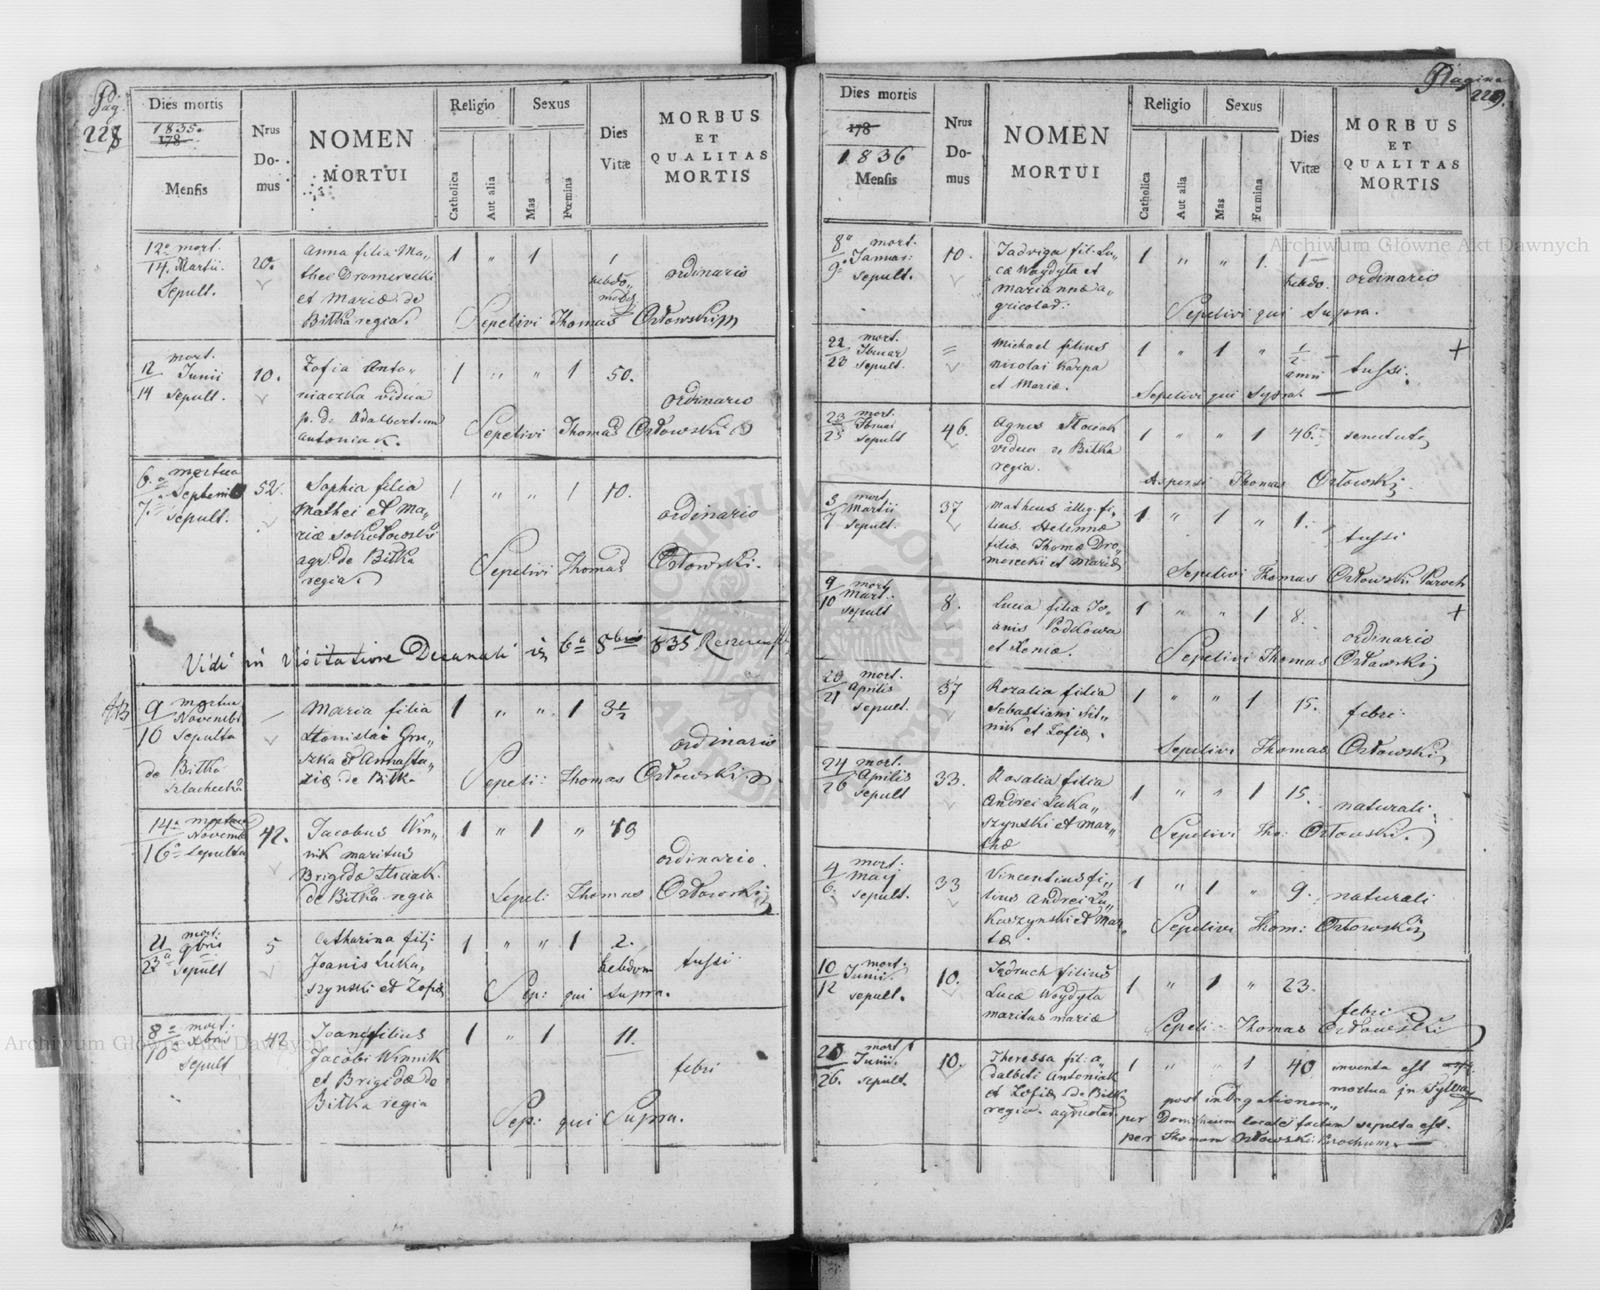 Pag.
228
Dies mortis
1835.
178
Mensis
Nrus
Do-
mus
NOMEN
MORTUI
Religio
Catholica
Aut alia
Sexus
Mas
Fœmina
Dies
Vitæ
MORBUS
ET
QUALITAS
MORTIS
12a mort.
14. Martii.
Sepult.
20.
Anna filia Ma„
thei
et Mariæ de
Bitka regia.
1 „ 1
1
hebdo„
ordinario
Sepelivi Thomas Orłowski
12 mort.
Junii
14 sepult.
10.
Zofia Anto„
niaczka vidua
p. de Adalbertum
Antoniak.
1 „ „ 1 50.
ordinario
Sepelivi Thomas Orłowski
6.a mortua
Septem
7.a sepult.
52.
Sophia filia
Mathei et Ma„
riæ Sokołowski
agr. de Bitka
regia.
1 „ „ 1 10.
ordinario
Sepelivi Thomas Orłowski.
Vidi in Visitatione Decanali 6a 8bris 835
9 mortua
Novembr
10 Sepulta
de Bitka
Szlachecka
Maria filia
Stanislai Gru„
szka et Annasta„
ziæ de Bitka
1 „ „ 1 3 1/2
ordinario
Sepeli: Thomas Orłowski
14a mortua
Novemb
16a sepulta
42.
Jacobus Win„
nik maritus
Brigidæ
de Bitka regia
1 „ 1 „ 43
ordinario.
Sepeli: Thomas Orłowski
21 mort.
9bris
23a Sepult
5
Catharina fili:
Joanis Luka„
szynski et Zofiæ
1 „ „ 1 2.
hebdom
tussi
Sep: qui supra.
8a mort.
Xbris
10a sepult
42
Joanes filius
Jacobi Winnik
et Brigidæ de
Bitka regia
1 „ 1 11.
febri
Sep: qui Supra.
Pagina
229.
Dies mortis
178
1836
Mensis
Nrus
Do-
mus
NOMEN
MORTUI
Religio
Catholica
Aut alia
Sexus
Mas
Fœmina
Dies
Vitæ
MORBUS
ET
QUALITAS
MORTIS
8a mort.
Januar:
9a Sepult.
10.
Jadviga fil: Lu„
cæ Woydyła et
Mariannæ a„
gricolar.
1 „ „ 1. 1
hebdo.
ordinario
Sepelivi qui Supra.
22 mort.
23 sepult.
Michael filius
Nicolai Karpa
et Mariæ.
1 „ 1 „ 1/2
anni
tussi.
+
Sepelivi qui Supra
23 mort.
25 sepult
46.
Agnes
vidua de Bitka
regia.
1 „ „ 1 46.
senectute
Thomas Orłowski.
5 mort.
Martii
7 sepult.
37
Matheus illeg: fi„
lius Helennæ
filiæ Thomæ Dro„
et Mariæ
1 „ 1 „ 1.
tussi
Sepelivi Thomas Orłowski Paroch
9 mort.
Mart.
10 sepult
8.
Lucia filia Jo„
anis Podkowa
et Xeniæ.
1 „ „ 1 8.
+
ordinario
Sepelivi Thomas Orłowski
20 mort.
Aprilis
21 sepult.
37
Rozalia filia
Sebastiani Sit„
nik et Zofiæ.
1 „ „ 1 15.
febri.
Sepelivi Thomas Orłowski
24 mort.
Aprilis
26 sepult
33.
Rosalia filia
Andrei Luka„
szynski et Mar„
thæ
1 „ „ 1 15.
naturali
Sepelivi Tho: Orłowski.
4 mort.
Maij
6. sepult.
33
Vincentius fi„
lius Andrei Lu„
kaszynski et Mar„
tæ
1 „ 1 „ 9.
naturali
Sepelivi Thom: Orłowski
10 mort.
Junii.
12 sepult.
10.
Jędruch filius
Lucæ Woydyła
maritus Mariæ
1 „ 1 „ 23.
febri
Sepeli: Thomas Orłowski
25 mort
Junii.
26. sepult.
10.
Theressa fil: a„
dalbeti Antoniak
et Zofiæ de Bitka
regia agricolar.
1 „ „ 1 40
inventa est
mortua in Sylva
post indagationem
per Dominium locale factam sepulta est.
per Thomam Orłowski Parochum.
Archiwum Główne Akt Dawnych
Archiwum Główne Akt Dawnych
ARCHIWUM GŁÓWNE AKT DAWNYCH